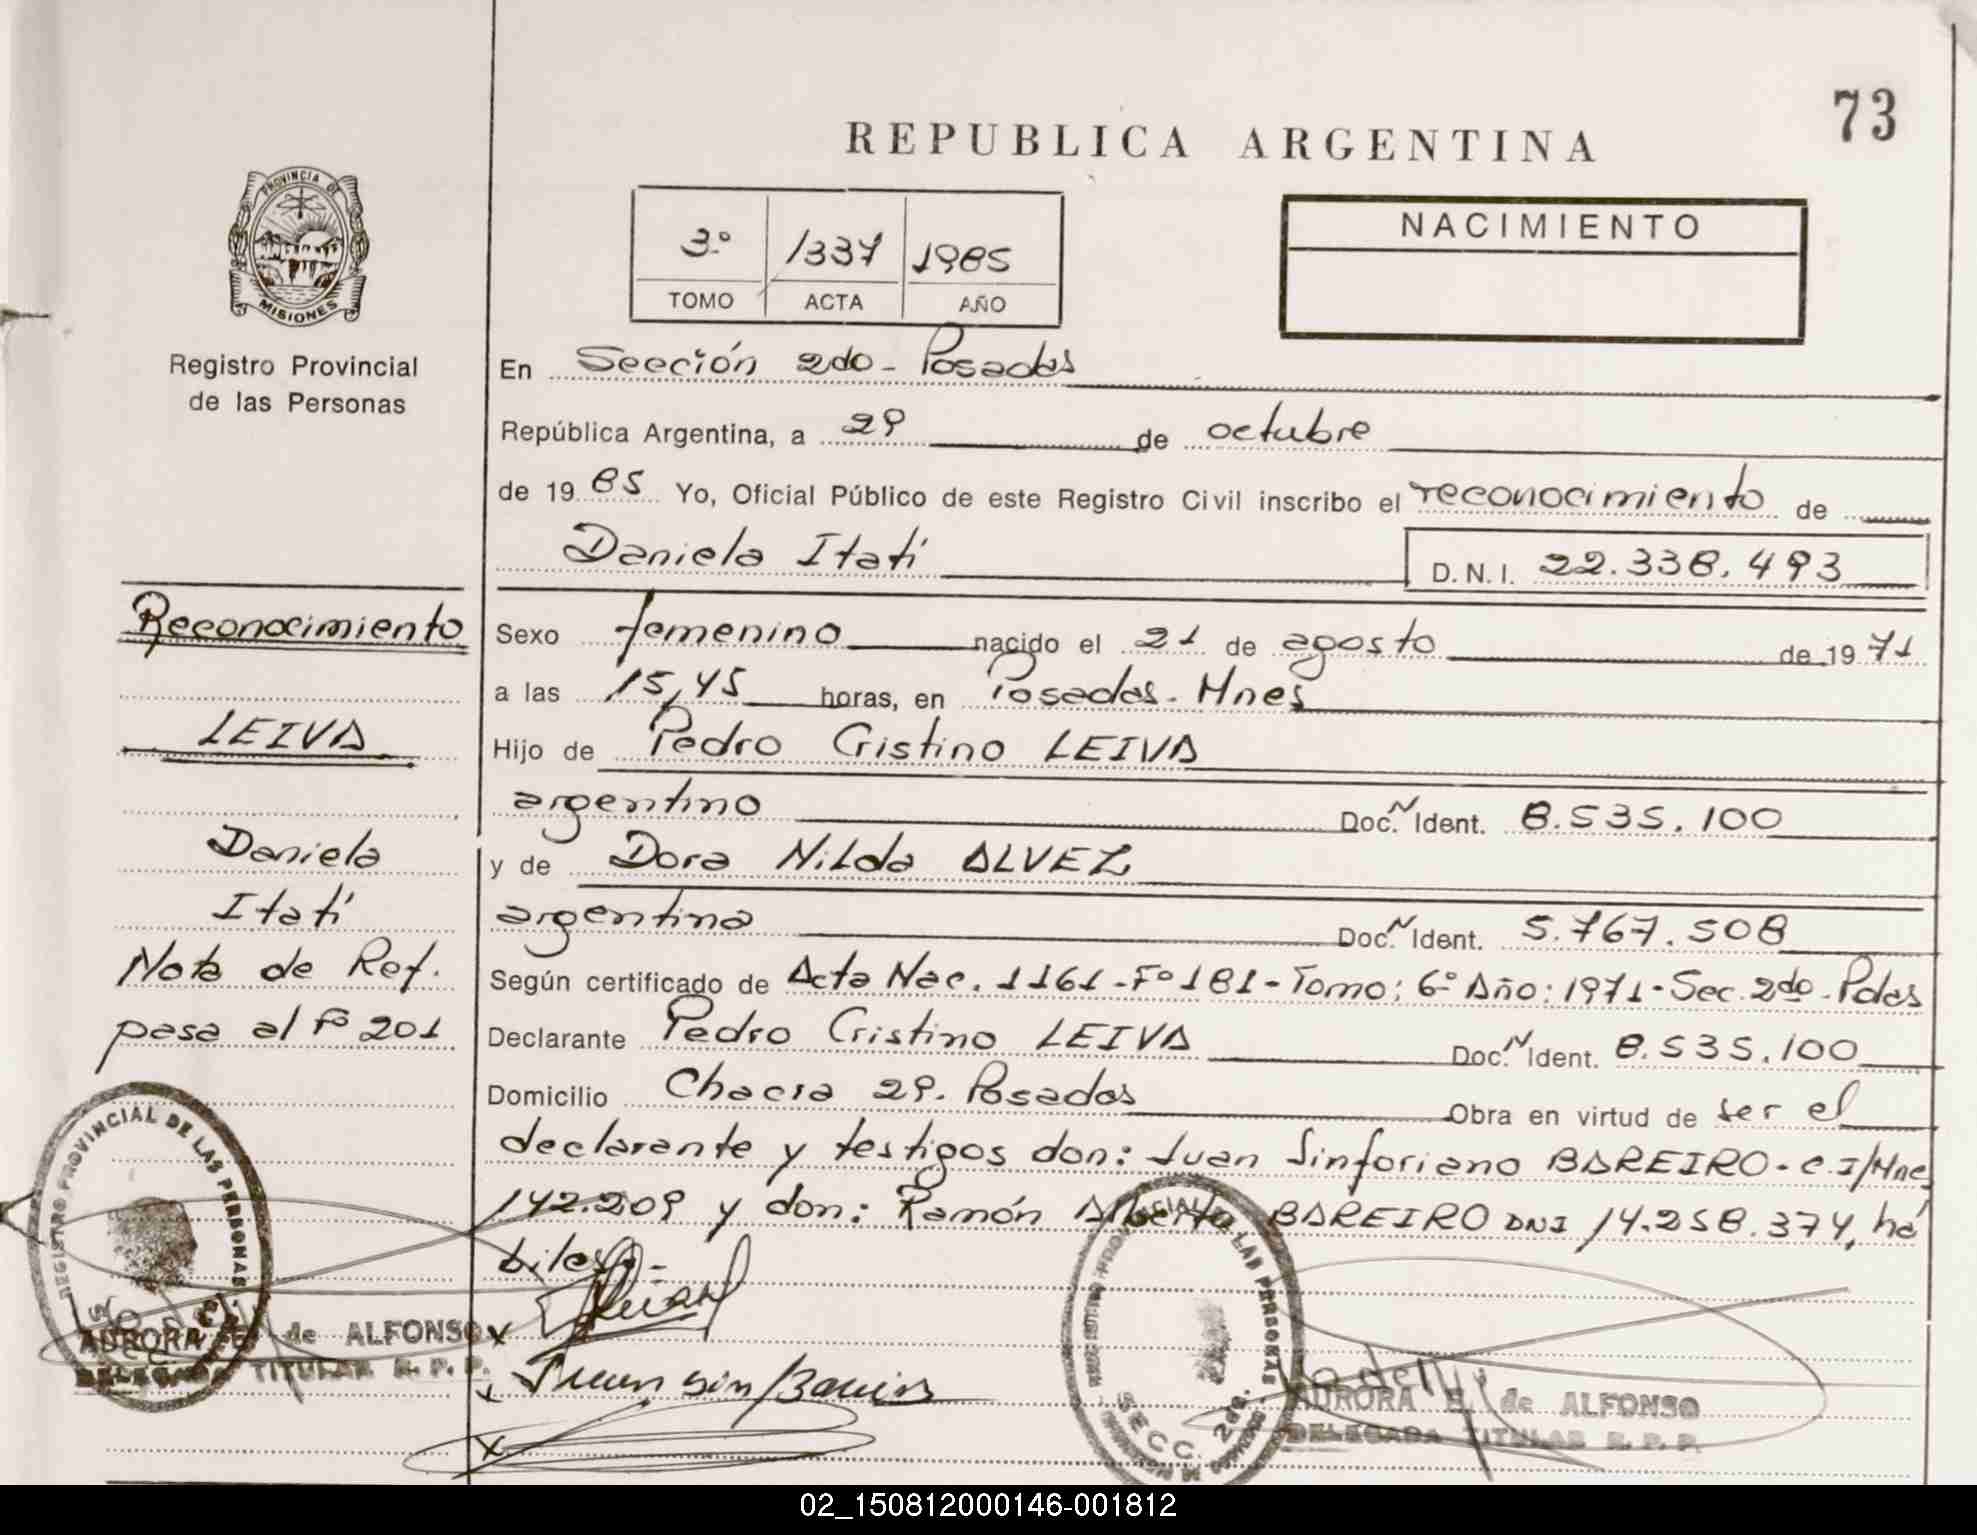 73
REPUBLICA ARGENTINA
PROVINCIA DE
MISIONES
Registro Provincial
de las Personas
3º 1337 1985
TOMO ACTA AÑO
NACIMIENTO
En Sección 2da - Posadas
República Argentina, a 29 de octubre
de 1985 Yo, Oficial Público de este Registro Civil inscribo el reconocimiento de
Daniela Itatí D.N.I. 22.338.493
Reconocimiento
LEIVA
Daniela
Itatí
Nota de Ref.
pasa al Fº 201
Sexo femenino nacido el 21 de agosto de 1971
a las 15,45 horas, en Posadas - Mnes
Hijo de Pedro Cristino LEIVA
argentino Doc. N Ident. 8.535.100
y de Dora Nilda ALVEZ
argentina Doc. N Ident. 5.767.508
Según certificado de Acta Nac. 1161 - Fº 181 - Tomo: 6º Año: 1971 - Sec. 2da - Pdas
Declarante Pedro Cristino LEIVA Doc. N Ident. 8.535.100
Domicilio Chacra 29. Posadas Obra en virtud de ser el
declarante y testigos don: Juan Sinforiano BAREIRO - C.I/Mnes
142.209 y don: Ramón Alberto BAREIRO DNI 14.258.374, há
biles. -
REGISTRO PROVINCIAL DE LAS PERSONAS
AURORA E. de ALFONSO
DELEGADA TITULAR R. P. P.
SECC. 2da.
AURORA E. de ALFONSO
DELEGADA TITULAR R. P. P.
02_150812000146-001812